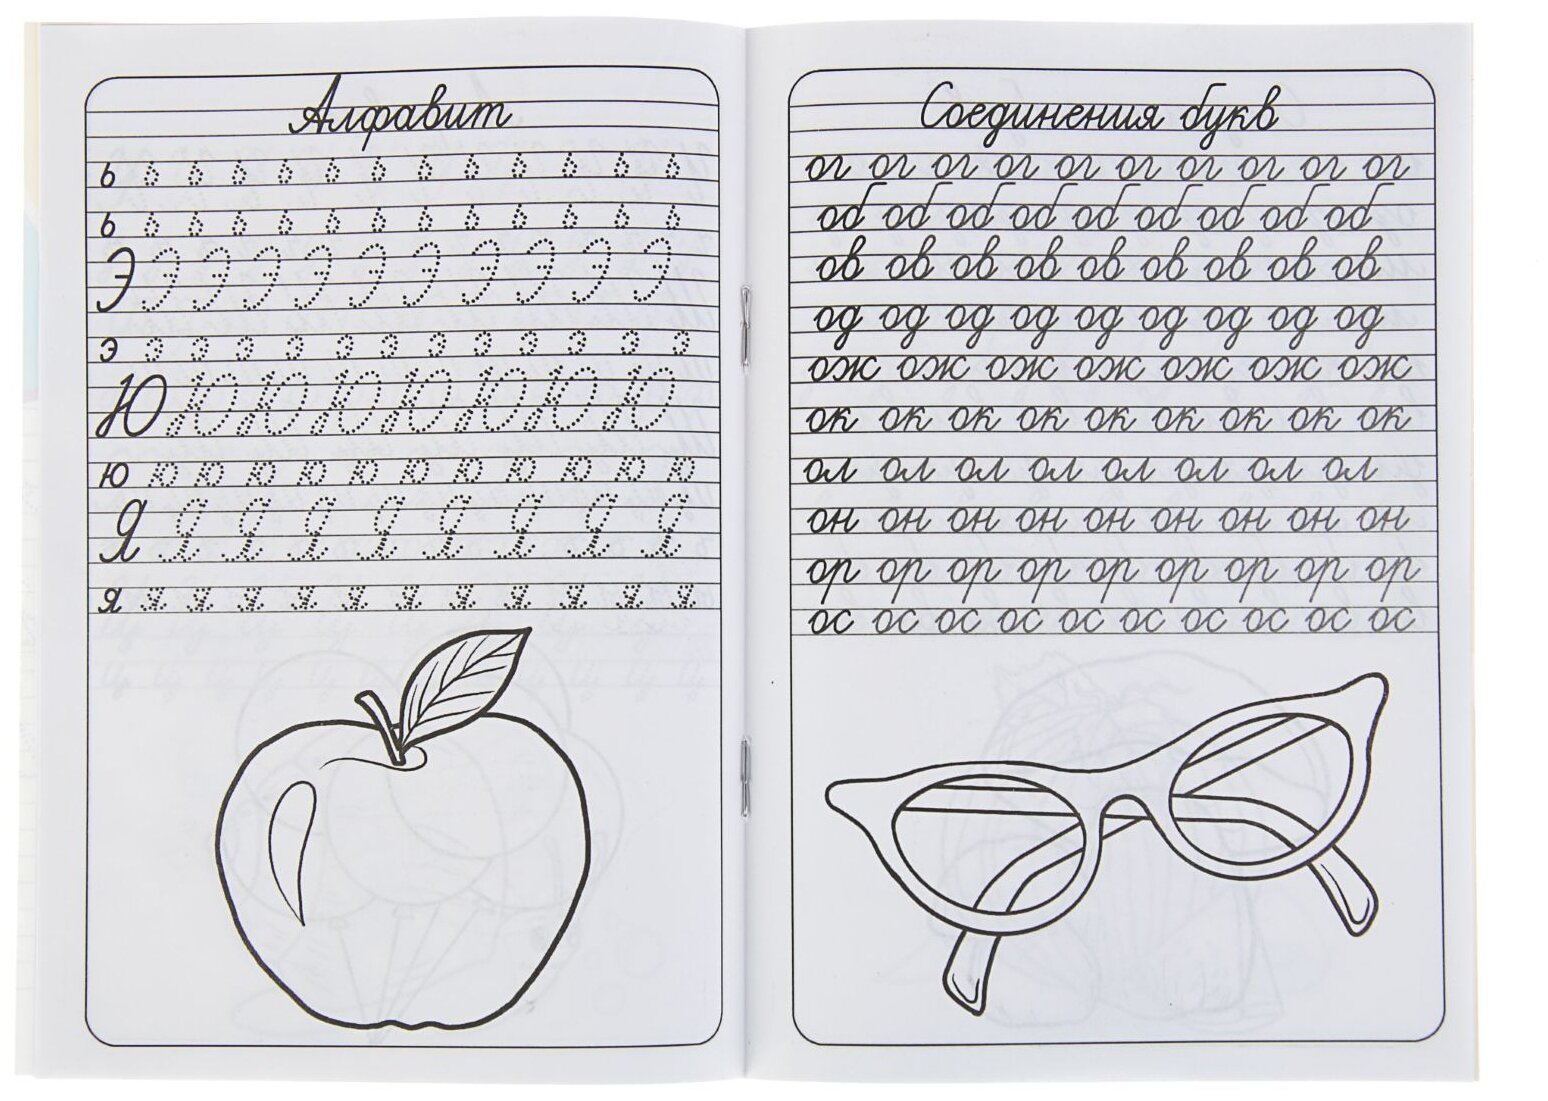 Алфавит
ь ь ь ь ь ь ь ь ь ь ь ь ь
ь ь ь ь ь ь ь ь ь ь ь ь ь
Э Э Э Э Э Э Э Э Э Э Э
э э э э э э э э э э э э э
Ю Ю Ю Ю Ю Ю Ю Ю
ю ю ю ю ю ю ю ю ю ю ю ю
Я Я Я Я Я Я Я Я Я
я я я я я я я я я я я я
Соединения букв
ог ог ог ог ог ог ог ог ог ог
об об об об об об об об об
ов ов ов ов ов ов ов ов ов
од од од од од од од од од
ож ож ож ож ож ож ож
ок ок ок ок ок ок ок ок ок
ол ол ол ол ол ол ол ол
он он он он он он он он он
ор ор ор ор ор ор ор ор ор
ос ос ос ос ос ос ос ос ос ос